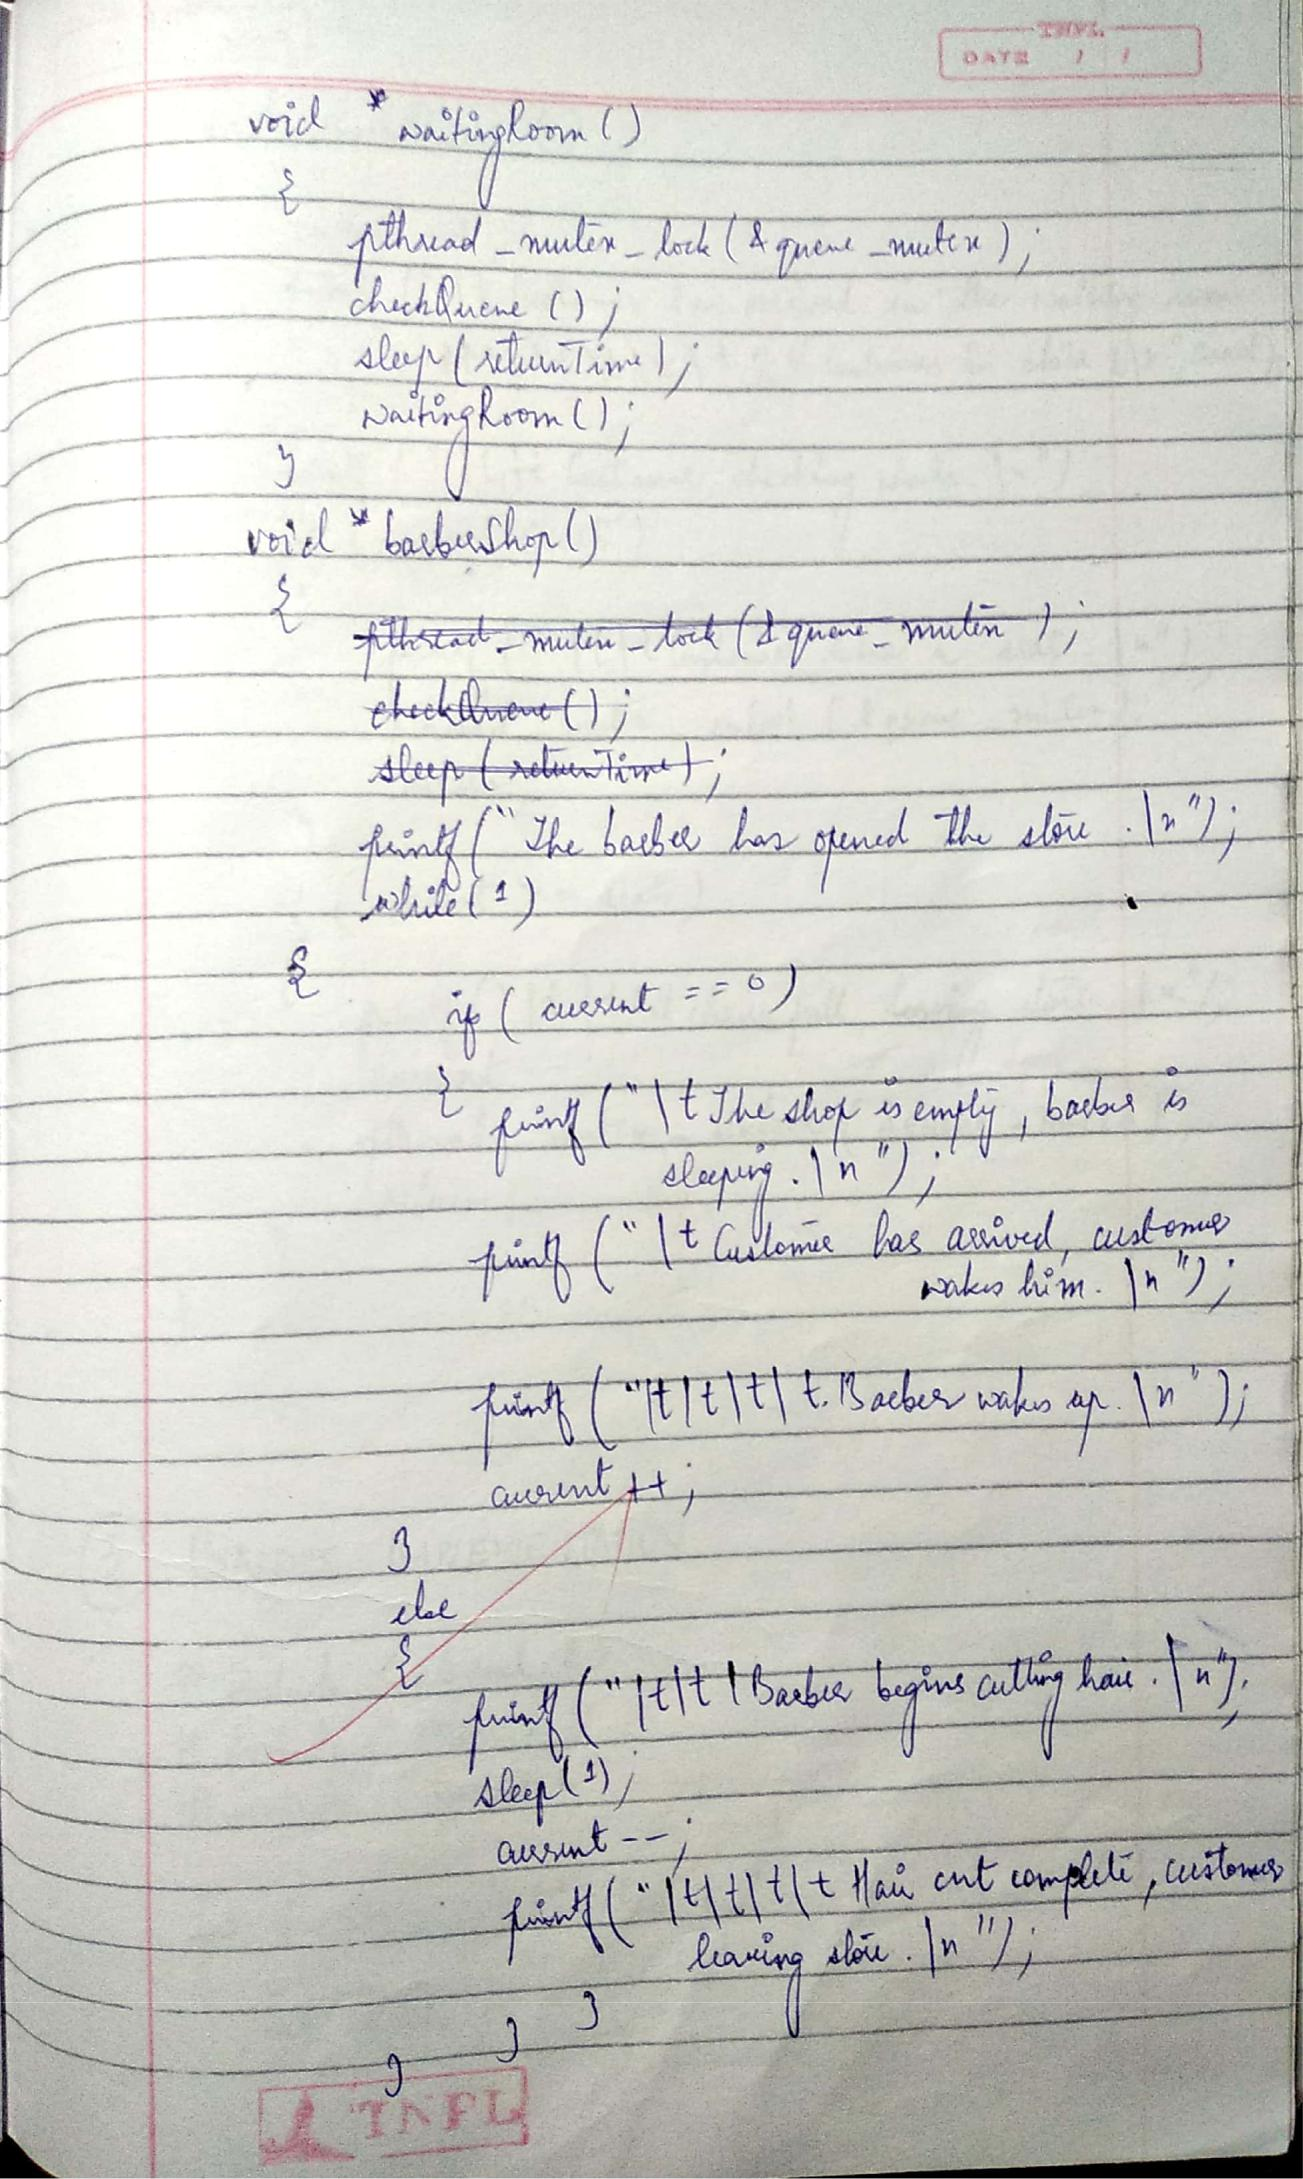 TNPL
DATE / /
void * waitingRoom ()
{
pthread_mutex_lock (&queue_mutex);
checkQueue ();
sleep (returnTime);
waitingRoom ();
}
void * barberShop ()
{
pthread_mutex_lock (&queue_mutex);
checkQueue ();
sleep (returnTime);
printf ("The barber has opened the store.\n");
while (1)
{
if ( current == 0)
{
printf ("\t The shop is empty, barber is
sleeping.\n");
printf ("\t Customer has arrived, customer
wakes him. \n");
printf ("\t\t\t\t. Barber wakes up. \n");
current ++;
}
else
{
printf ("\t\t \ Barber begins cutting hair. \n");
sleep (1);
current --;
printf ("\t\t\t\t Hair cut complete, customer
leaving store. \n");
}
}
}
TNPL